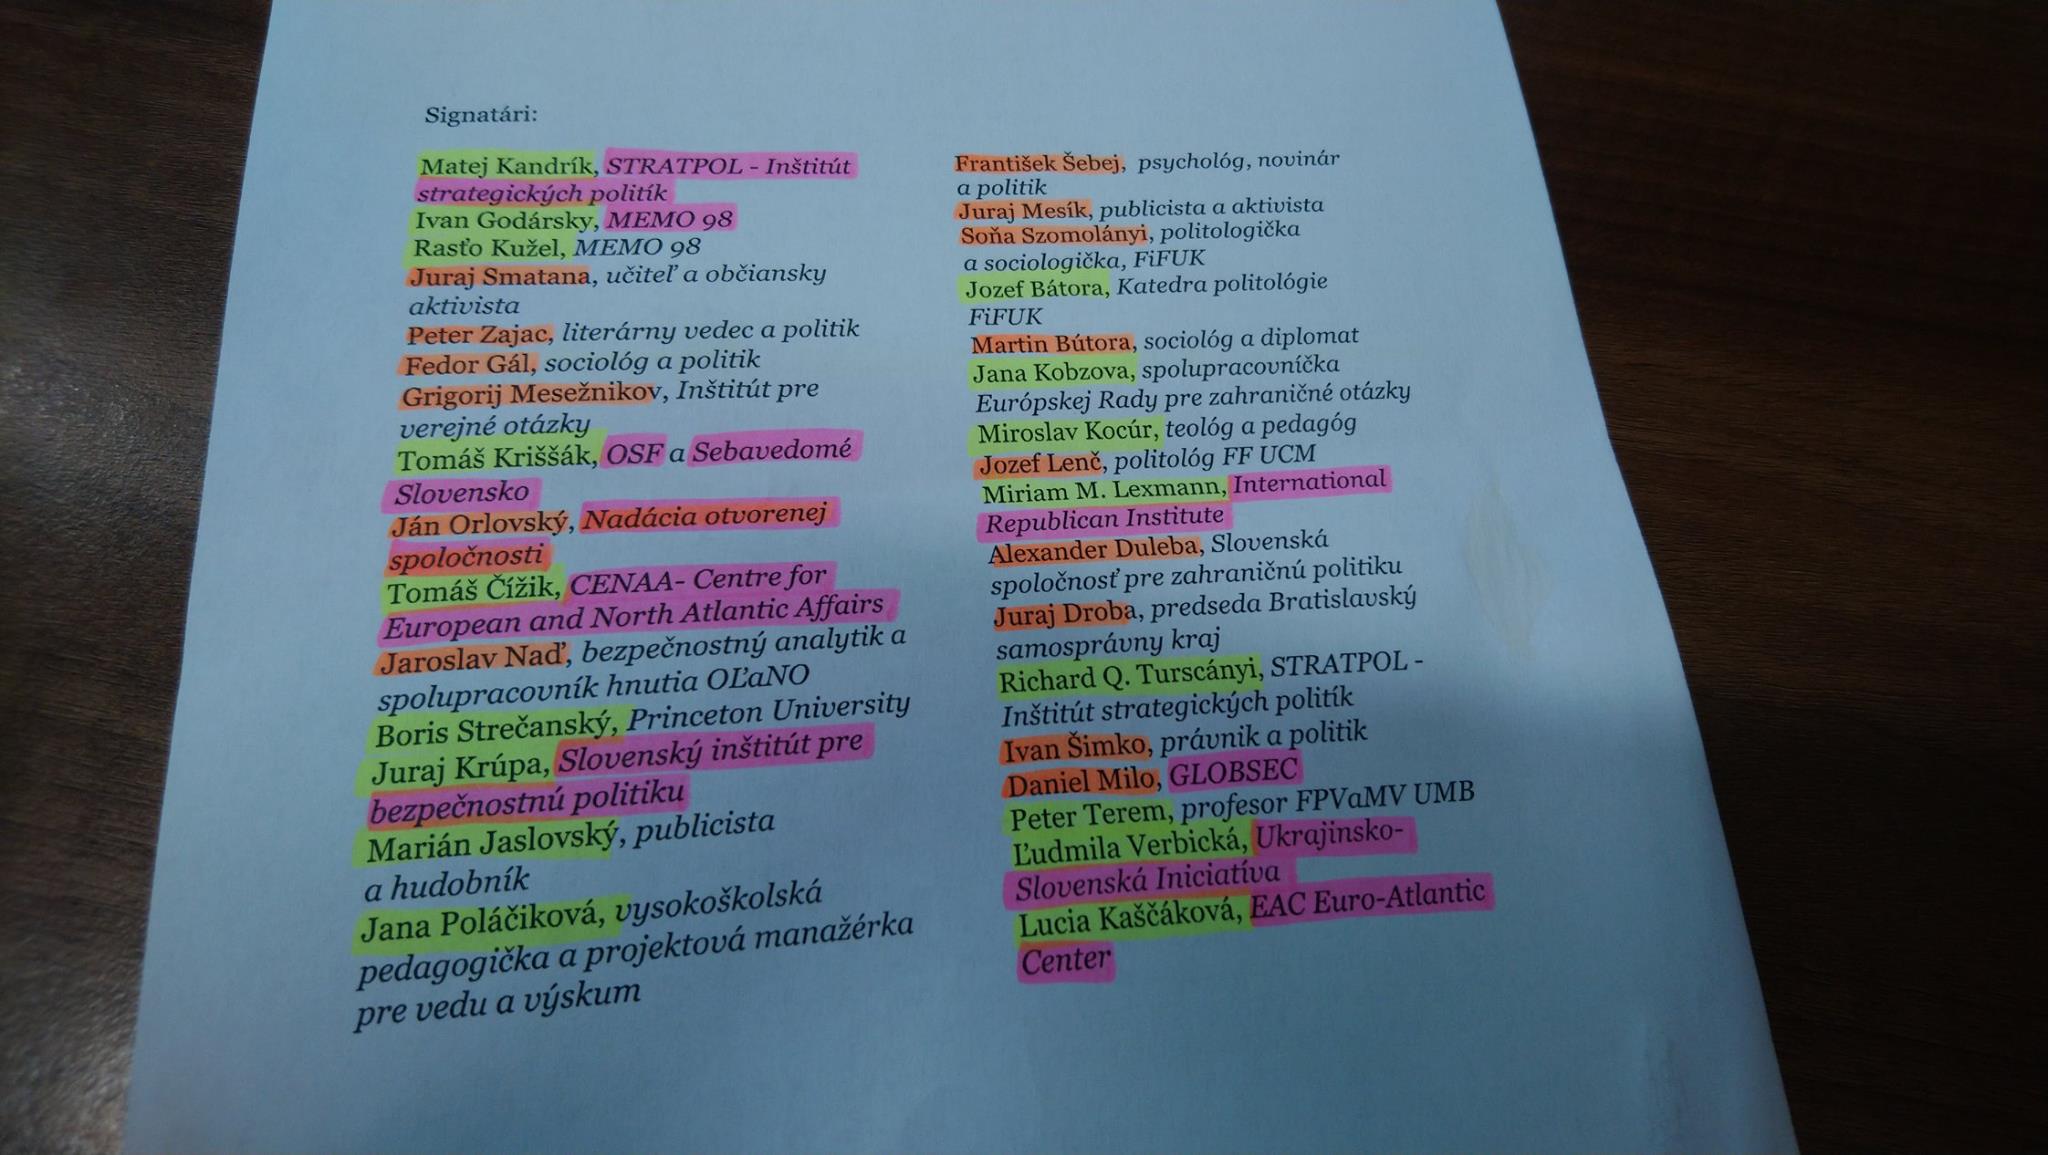 Signatári:
Matej Kandrík, STRATPOL - Inštitút
strategických politík
Ivan Godársky, MEMO 98
Rasťo Kužel, MEMO 98
Juraj Smatana, učiteľ a občiansky
aktivista
Peter Zajac, literárny vedec a politik
Fedor Gál, sociológ a politik
Grigorij Mesežnikov, Inštitút pre
verejné otázky
Tomáš Kriššák, OSF a Sebavedomé
Slovensko
Ján Orlovský, Nadácia otvorenej
spoločnosti
Tomáš Čížik, CENAA- Centre for
European and North Atlantic Affairs
Jaroslav Naď, bezpečnostný analytik a
spolupracovník hnutia OĽaNO
Boris Strečanský, Princeton University
Juraj Krúpa, Slovenský inštitút pre
bezpečnostnú politiku
Marián Jaslovský, publicista
a hudobník
Jana Poláčiková, vysokoškolská
pedagogička a projektová manažérka
pre vedu a výskum
František Šebej, psychológ, novinár
a politik
Juraj Mesík, publicista a aktivista
Soňa Szomolányi, politologička
a sociologička, FiFUK
Jozef Bátora, Katedra politológie
FiFUK
Martin Bútora, sociológ a diplomat
Jana Kobzova, spolupracovníčka
Európskej Rady pre zahraničné otázky
Miroslav Kocúr, teológ a pedagóg
Jozef Lenč, politológ FF UCM
Miriam M. Lexmann, International
Republican Institute
Alexander Duleba, Slovenská
spoločnosť pre zahraničnú politiku
Juraj Droba, predseda Bratislavský
samosprávny kraj
Richard Q. Turscányi, STRATPOL -
Inštitút strategických politík
Ivan Šimko, právnik a politik
Daniel Milo, GLOBSEC
Peter Terem, profesor FPVaMV UMB
Ľudmila Verbická, Ukrajinsko-
Slovenská Iniciatíva
Lucia Kaščáková, EAC Euro-Atlantic
Center